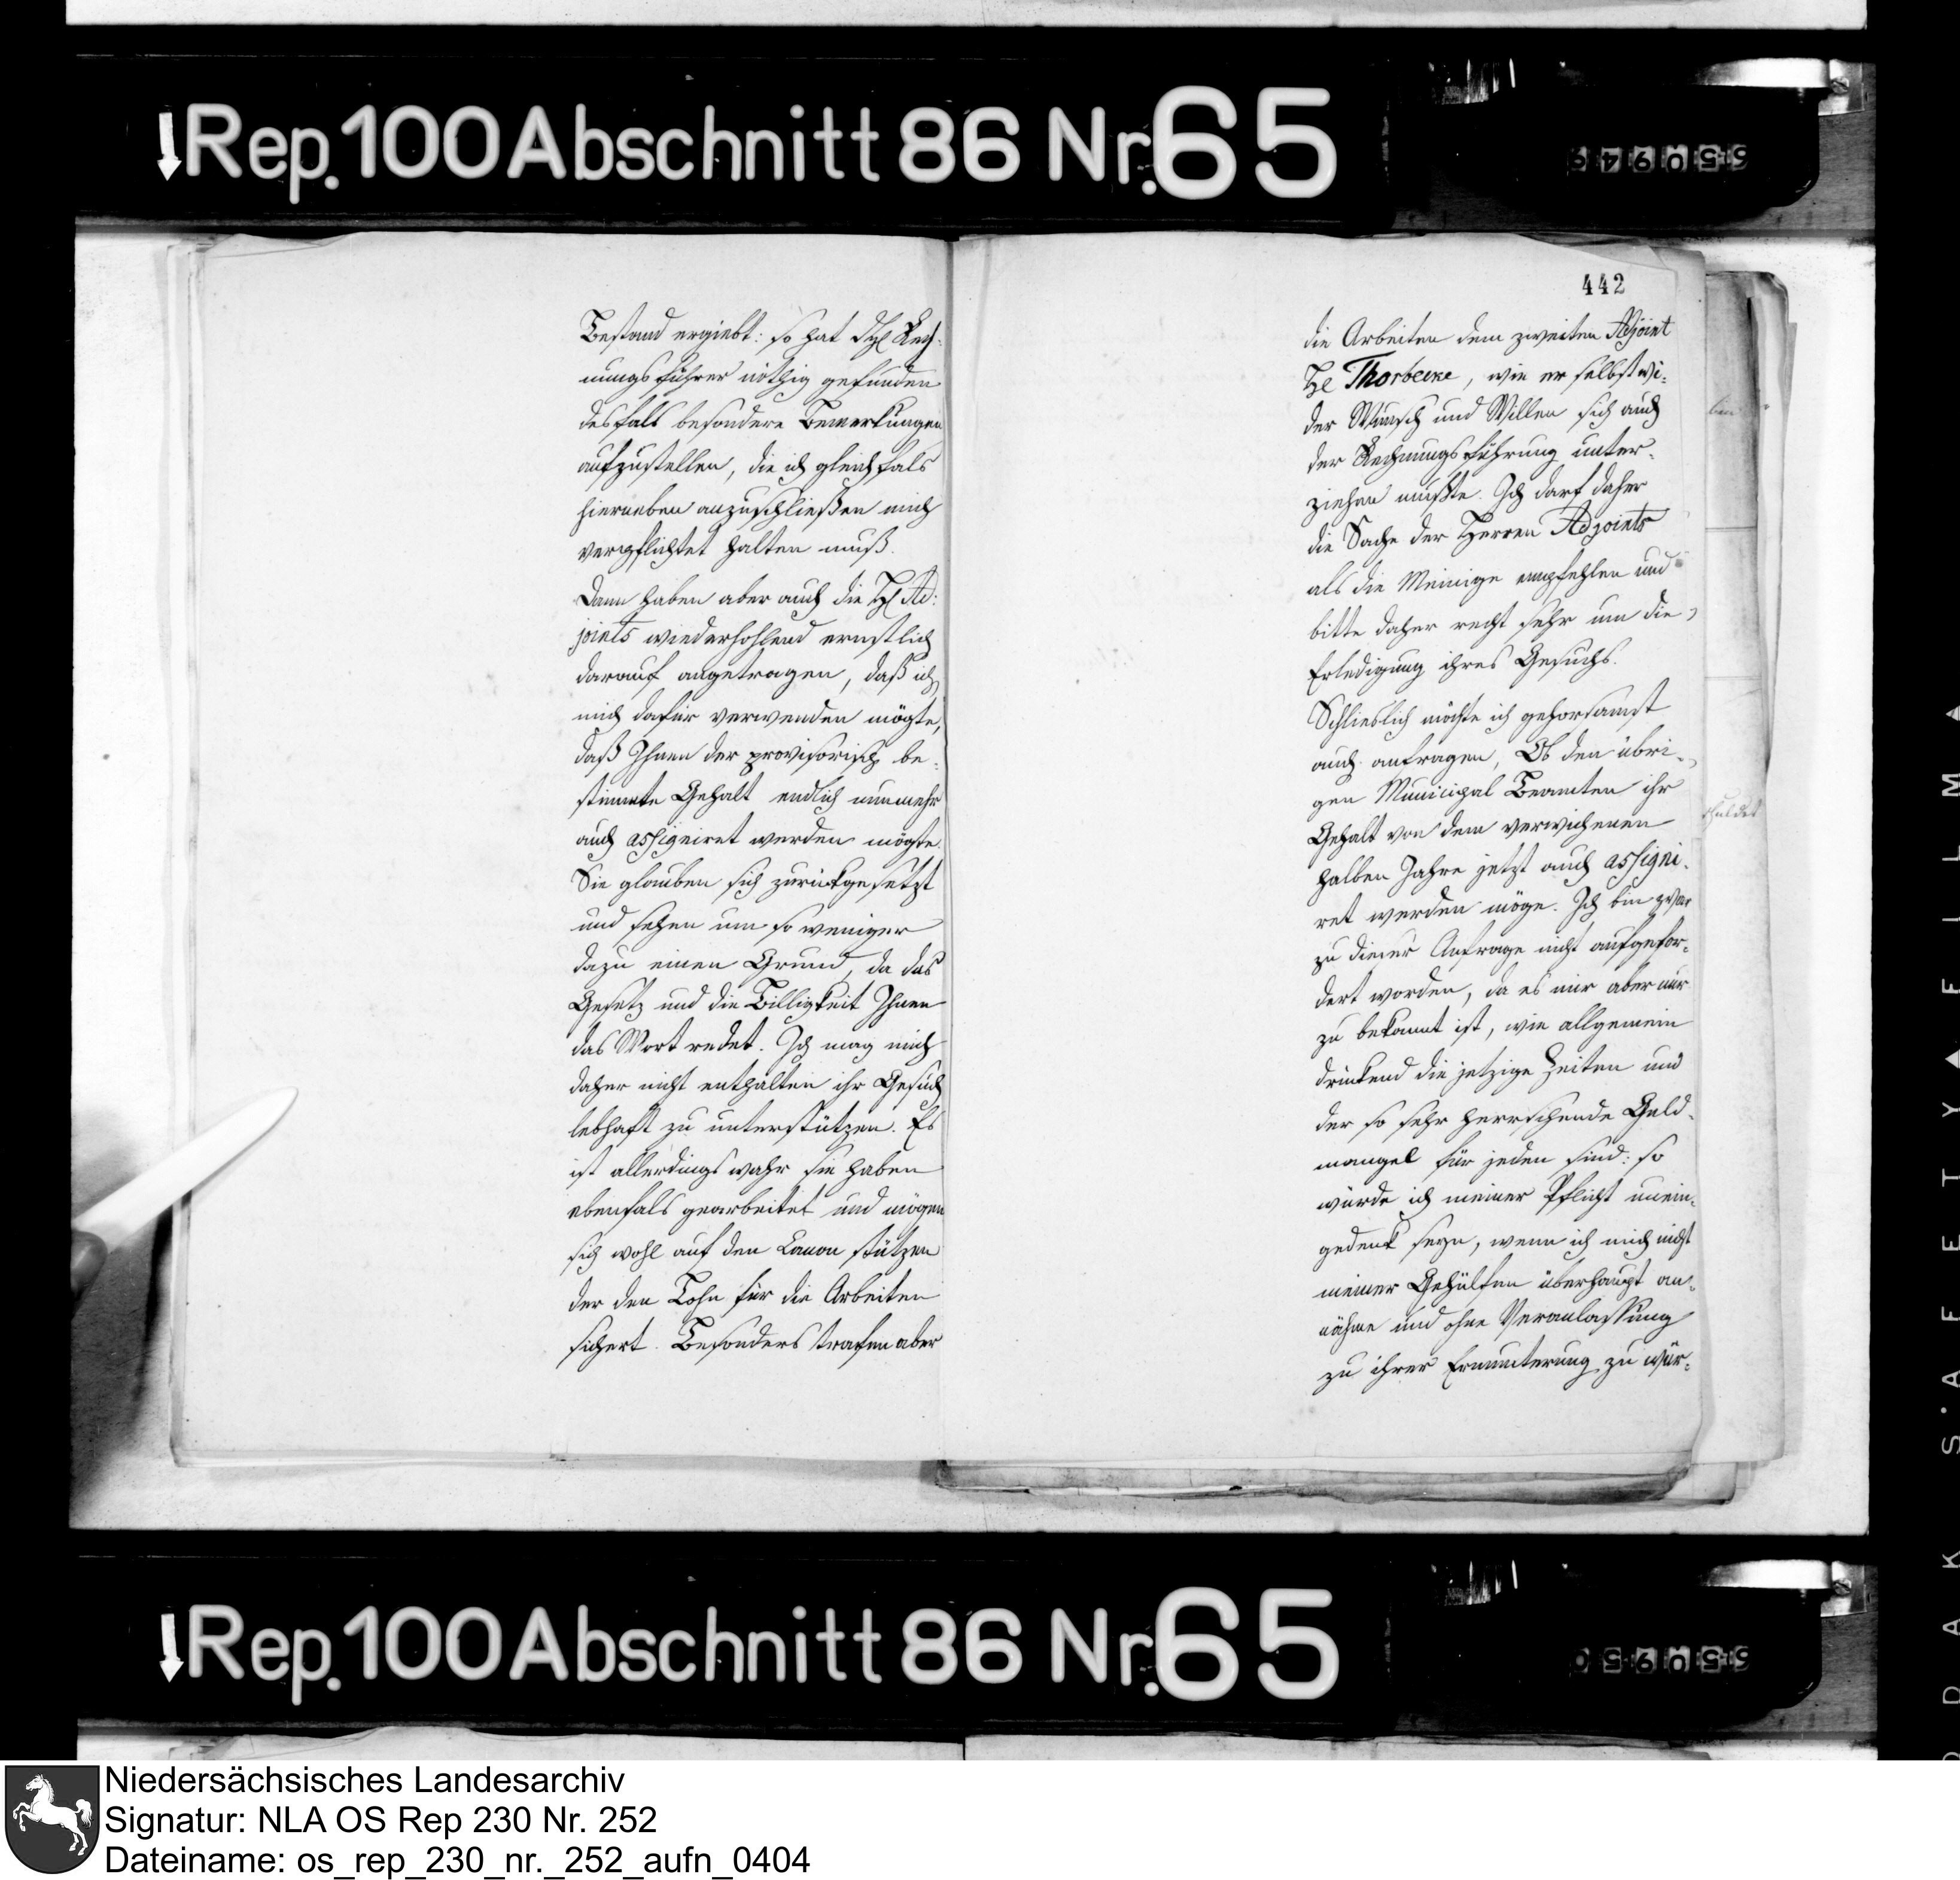 Rep. 100 Abschnitt 86 Nr. 65
Bestand ergiebt: so hat Rech-
nungsführer nöthig gefunden
desfals besondere Bemerkungen
aufzustellen, die ich gleichfals
hierneben anzuschließen mich
verpflichtet halten muß.
Dann haben aber auch die H Ad:
joints wiederhohlend ernstlich
darauf angetragen, daß ich
mich dafür verwenden mögte,
daß Ihnen der provisorisch be-
stimmte Gehalt endlich nunmehr
auch assigniret werden mögte.
Sie glauben sich zurückgesetzt
und sehen um so weniger
dazu einen Grund, da das
Gesetz und die Billigkeit Ihnen
das Wort redet. Ich mag mich
daher nicht enthalten ihr Gesuch
lebhaft zu unterstützen. Es
ist allerdings wahr sie haben
ebenfals gearbeitet und mögen
sich wohl auf den Canon stützen
der den Lohn für die Arbeiten
sichert. Besonders trafen aber
442
die Arbeiten dem zweiten Adjoint
He Thorbecke, wie er selbst wi-
der Wunsch und Willen sich auch
der Rechnungsführung unter-
ziehen mußte. Ich darf daher
die Sache der Herren Adjoints
als die Meinige empfehlen und
bitte daher recht sehr um die
Erledigung ihres Gesuchs.
Schlieslich möchte ich gehorsamst
auch anfragen, Ob den übri-
gen Municipal Beamten ihr
Gehalt von dem verwichenen
halben Jahre jetzt auch assigni-
ret werden möge. Ich bin zwar
zu dieser Anfrage nicht aufgefor-
dert worden, da es mir aber nur
zu bekannt ist, wie allgemein
drückend die jetzige Zeiten und
der so sehr herrschende Geld-
mangel für jeden sind: so
würde ich meiner Pflicht unein-
gedenk seyn, wenn ich mich nicht
meiner Gehülfen überhaupt an-
nähme und ohne Veranlassung
zu ihrer Ermunterung zu wür-
Rep. 100 Abschnitt 86 Nr. 65
Niedersächsisches Landesarchiv
Signatur: NLA OS Rep 230 Nr. 252
Dateiname: os_rep_230_nr._252_aufn_0404